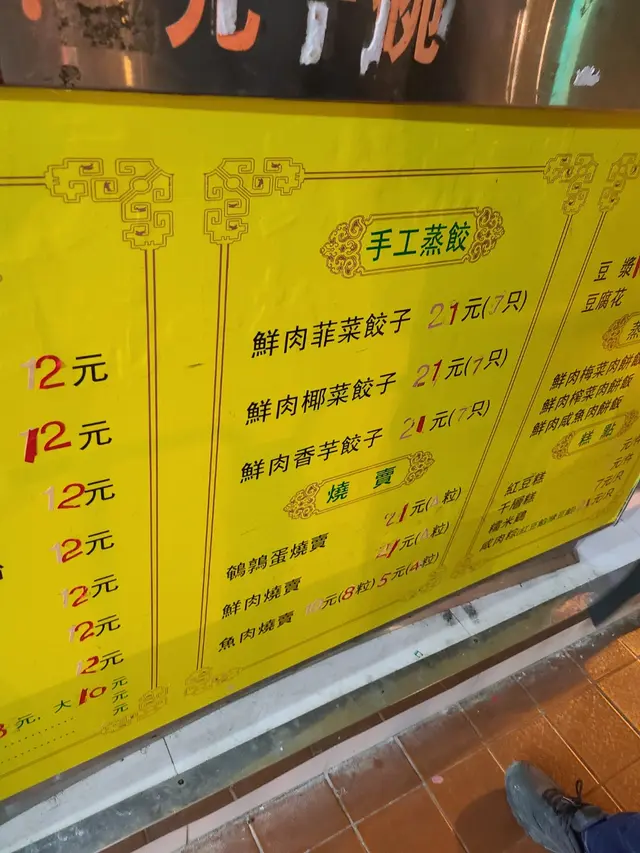 12元
12元
12元
12元
12元
12元
12元
元, 大10元
元
元
手工蒸餃
鮮肉菲菜餃子 21元(7只)
鮮肉椰菜餃子 21元(7只)
鮮肉香芋餃子 21元(7只)
燒賣
鵪鶉蛋燒賣 21元(4粒)
鮮肉燒賣 21元(4粒)
魚肉燒賣 10元(8粒) 5元(4粒)
豆漿
豆腐花
蒸
鮮肉梅菜肉餅飯
鮮肉榨菜肉餅飯
鮮肉咸魚肉餅飯
糕點
紅豆糕
千層糕
糯米雞 7元/只
咸肉粽